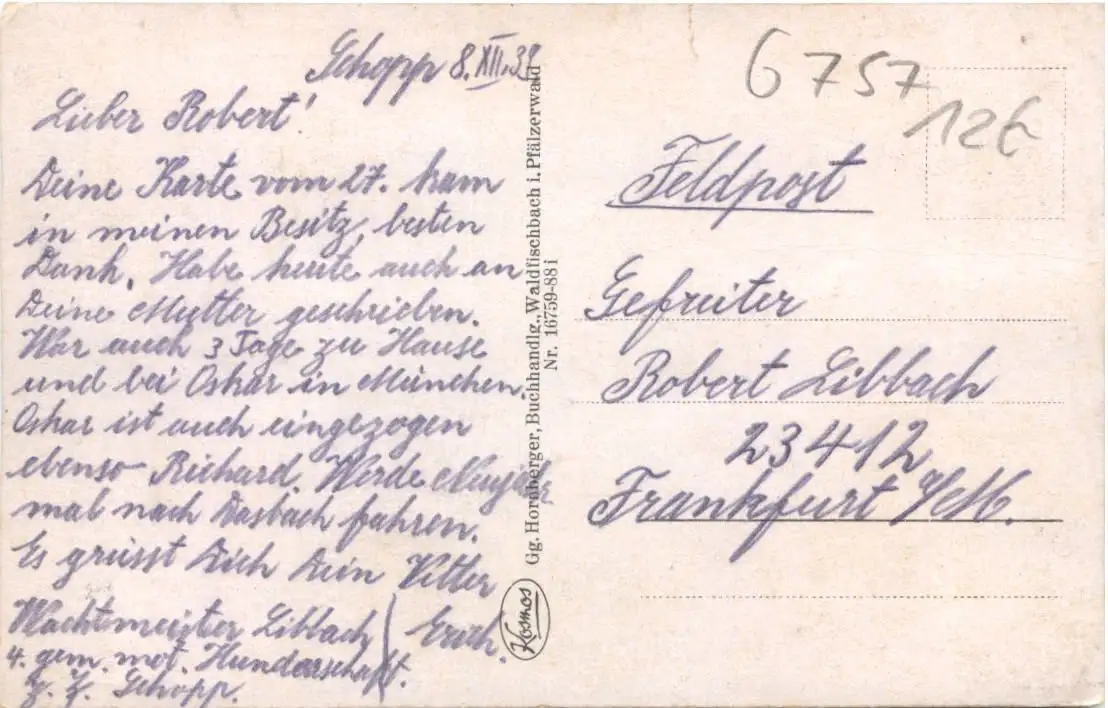 Schopp 8.XII.39
Lieber Robert!
Deine Karte vom 27. kam
in meinen Besitz, besten
Dank. Habe heute auch an
Deine Mutter geschrieben.
War auch 3 Tage zu Hause
und bei Oskar in München.
Oskar ist auch eingezogen
ebenso Richard. Werde Neujahr
mal nach Dasbach fahren.
Es grüsst Dich Dein Vetter
Erich.
Wachtmeister Libbach
4. gem. mot. Hunderschaft.
z. Z. Schopp.
Gg. Hornberger, Buchhandlg., Waldfischbach i. Pfälzerwald
Nr. 16759-88 i
Kosmos
6757
12€
Feldpost
Gefreiter
Robert Libbach
23412
Frankfurt a/M.